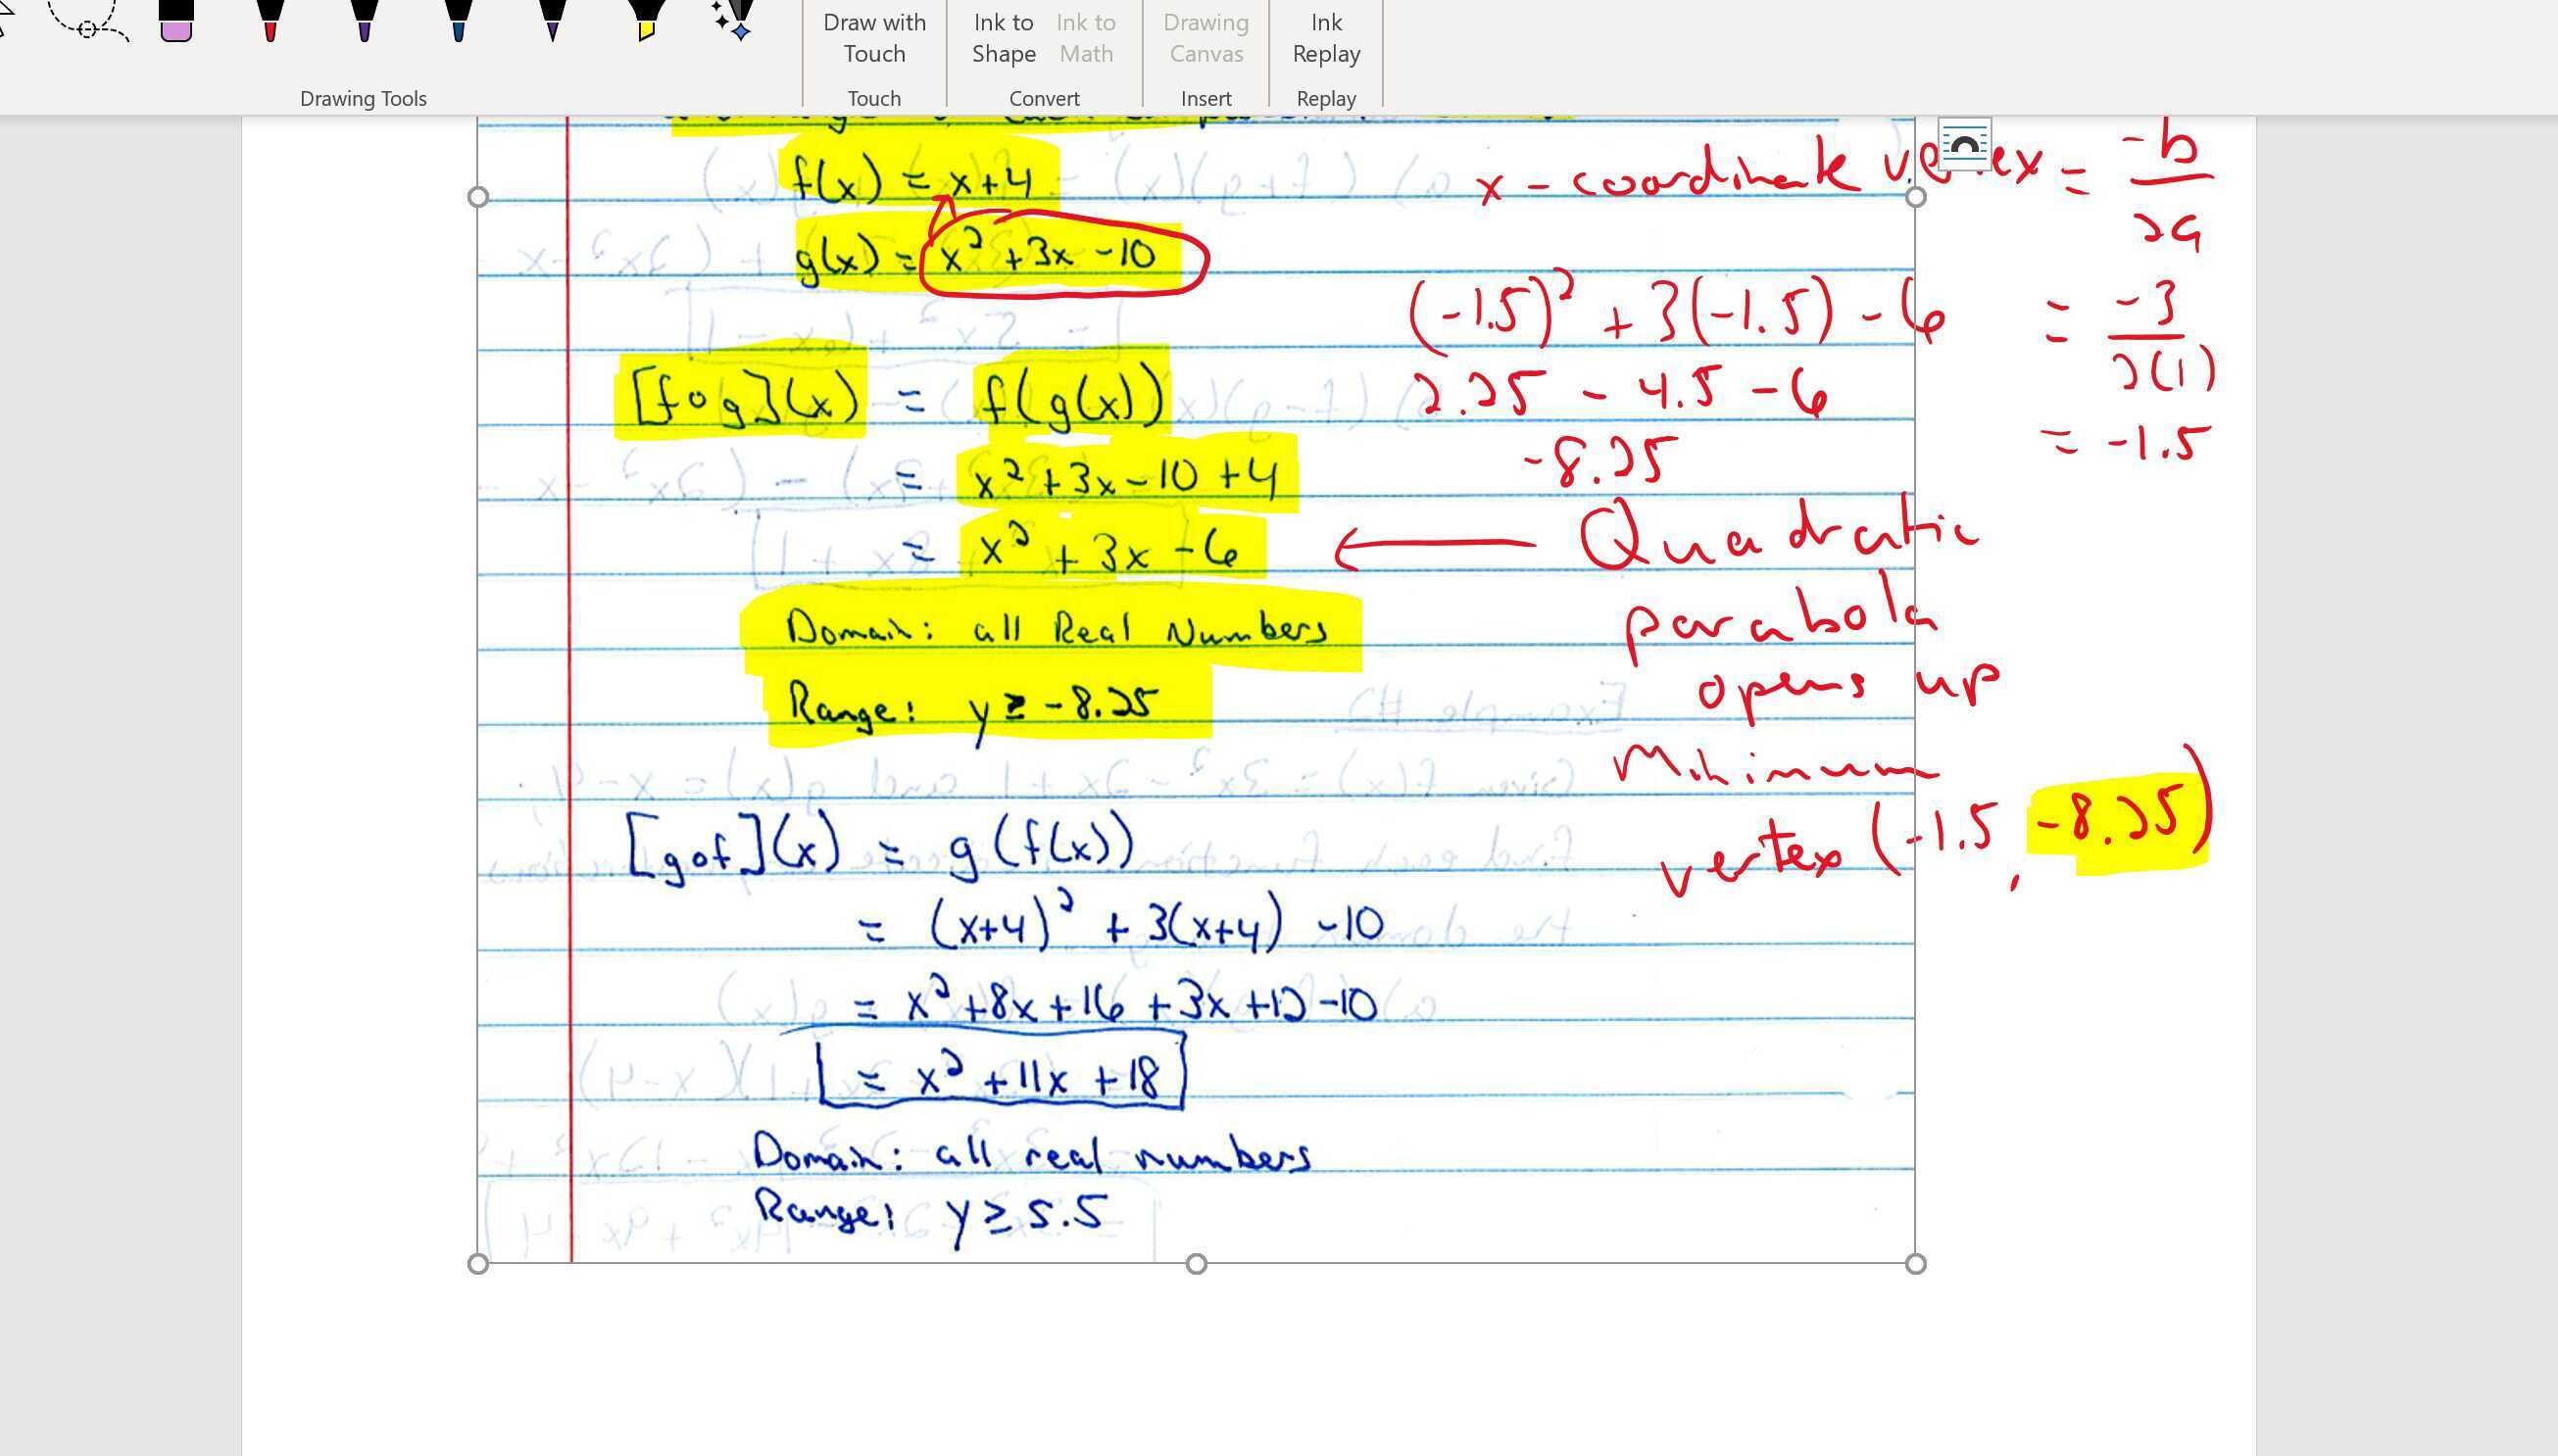 Draw with Touch
Ink to Shape
Ink to Math
Drawing Canvas
Ink Replay
Drawing Tools
Touch
Convert
Insert
Replay
f(x) = x+4
g(x) = x² + 3x - 10
[f∘g](x) = f(g(x))
= x² + 3x - 10 + 4
= x² + 3x - 6
Domain: all Real Numbers
Range: y ≥ -8.25
[g∘f](x) = g(f(x))
= (x+4)² + 3(x+4) - 10
= x² + 8x + 16 + 3x + 12 - 10
= x² + 11x + 18
Domain: all real numbers
Range: y ≥ 5.5
x-coordinate vertex = -b/2a
= -3/2(1)
= -1.5
(-1.5)² + 3(-1.5) - 6
2.25 - 4.5 - 6
-8.25
Quadratic
parabola
opens up
Minimum
vertex (-1.5, -8.25)